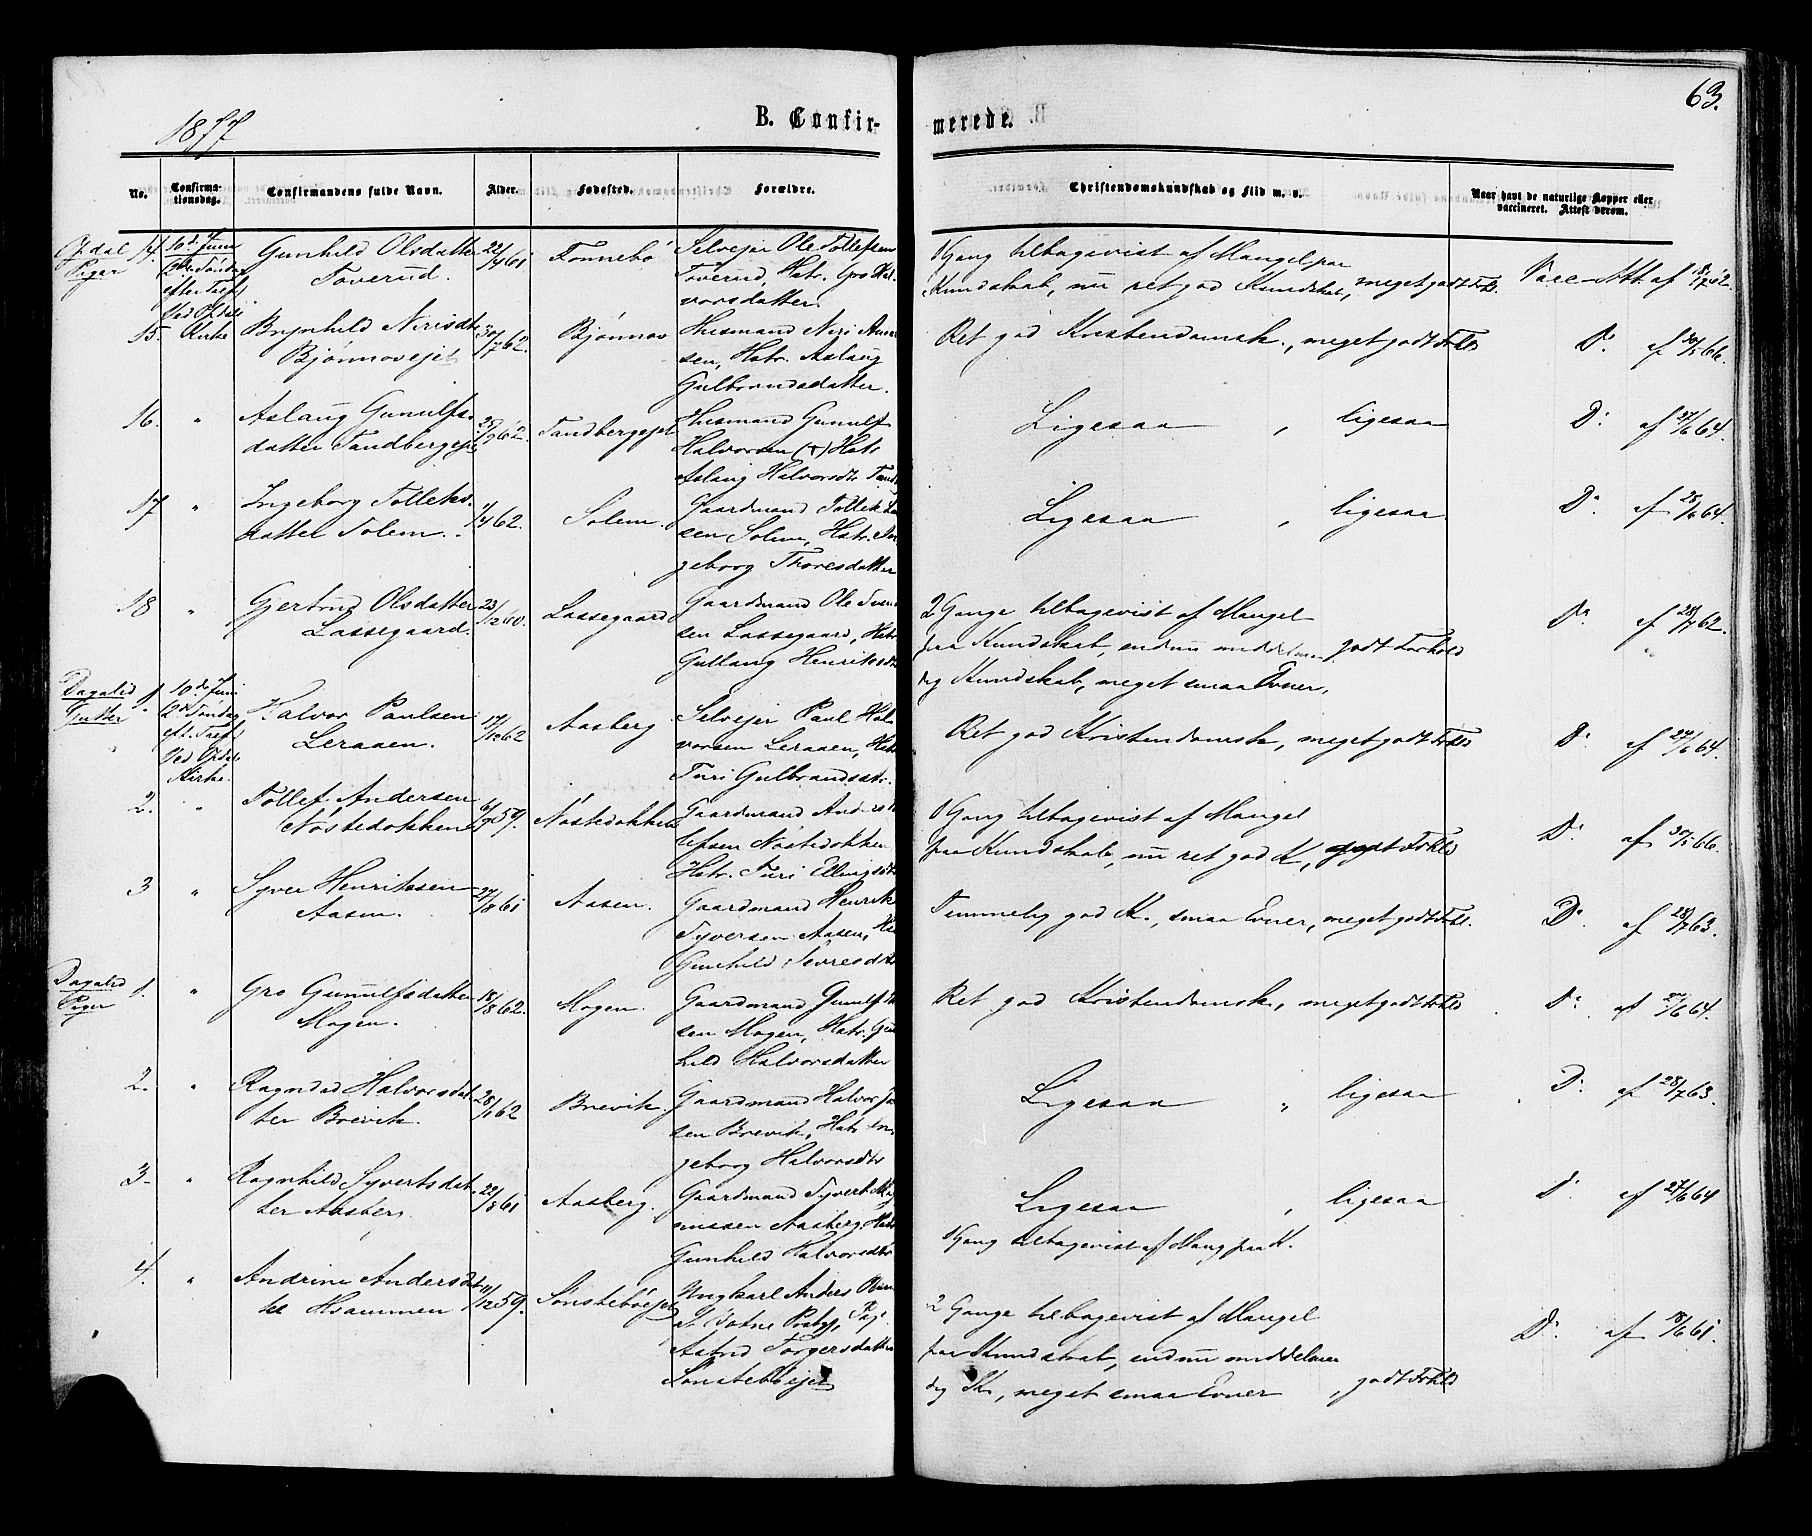 63.
1877
B. Confir-
merede.
No.
Confirma-
tionsdag.
Confirmandens fulde Navn.
Alder.
Fødested.
Forældre.
Christendomskundskab og Flid m. v.
Naar havt de naturlige Kopper eller
vaccineret. Attest derom.
Opdal
Piger
14.
10de Juni
2den Søndag
efter Tref.
Ved Opdal
Kirke
Gunhild Olsdatter
Toverud.
22/4 61
Tonnebö
Selveier Ole Tollefsen
Toverud, Hstr. Gro Hal-
vorsdatter.
1 Gang tilbagevist af Mangel paa
Kundskab, nu ret god Kundskab, meget godt Fhld.
Vacc. Att. af 18/7 62.
15.
Brynhild Nirisdt
Bjönnovejet
30/7 62.
Bjönnov
Husmand Niri Aune-
sen, Hstr. Aslaug
Gulbrandsdatter.
Ret god Kristendomsk., meget godt Fhld
D: af 30/5 66.
16.
"
Aslaug Gunulfs-
datter Sandbergejet
25/9 62.
Sandbergejet
Husmand Gunulf
Halvorsen (+) Hstr
Aslaug Halvorsdt.
Ligesaa , ligesaa
D: af 27/6 64.
17
"
Ingeborg Tolleks-
datter Solem.
1/4 62.
Solem.
Gaardmand Tollek
sen Solem, Hstr. In-
geborg Thoresdatter
Ligesaa , ligesaa
D: af 28/6 64.
18
"
Gjertrud Olsdatter
Lassegaard.
23/12 60.
Lassegaard
Gaardmand Ole Sven-
sen Lassegaard, Hstr.
Gullaug Henriksdt
2 Gange tilbagevist af Mangel
paa Kundskab, endnu middelmaa- godt Forhold
dig Kundskab, meget smaa Evner,
D: af 28/7 62.
"
Dagalid
Gutter
1.
10de Juni
2de Søndag
eft. Tref.
Ved Opdal
Kirke.
Halvor Paulsen
Leraaen.
17/12 62
Aasberg
Selvejer Paul Hal-
vorsen Leraaen, Hstr
Turi Gulbrandsdtr.
Ret god Kristendomsk, meget godt Fhld
D: af 27/6 64.
2.
"
Tollef Andersen
Nöstedokken
6/7 59.
Nöstedokken
Gaardmand Anders
lefsen Nöstedokken
Hstr. Turi Ellingsdt
1 Gang tilbagevist af Mangel
paa Kundskab, nu ret god K, godt Fhld
D: af 30/5 66.
3
"
Syver Henriksen
Aasen.
27/8 61
Aasen.
Gaardmand Henrik
Syversen Aasen,
Gunhild Sevresdt
Temmelig god K., smaa Evner, meget godt Fhld.
D: af 28/7 63.
Dagalid
Piger
1.
"
Gro Gunnulfsdatter
Mogen.
18/8 62.
Mogen.
Gaardmand Gunulf
sen Mogen, Hstr. Gun-
hild Halvorsdatter
Ret god Kristendomsk, meget godt Fhld
D: af 27/6 64.
2.
"
Ragndid Halvorsdat-
ter Brevik.
28/1 62
Brevik.
Gaardmand Halvor
sen Brevik, Hstr In-
geborg Halvorsdtr
Ligesaa " ligesaa
D: af 28/7 63.
3.
"
Ragnhild Syvertsdat-
ter Aasberg
22/8 61
Aasberg.
Gaardmand Syvert Mag-
nussen Aasberg, Hstr
Gunhild Halvorsdtr
Ligesaa , ligesaa
1 Gang tilbagevist af Mang. paa K.
D: af 27/6 64
4.
"
Andrine Andersdat-
ter Hsammen
11/12 59.
Sönsteböejet
Ungkarl Anders
Pige
Astrid Torgersdatter
Sönsteböejet
2 Gange tilbagevist af Mangel
paa Kundskab, endnu middelmaa-
dig K, meget smaa Evner , godt Fhld
D: af 18/6 61.